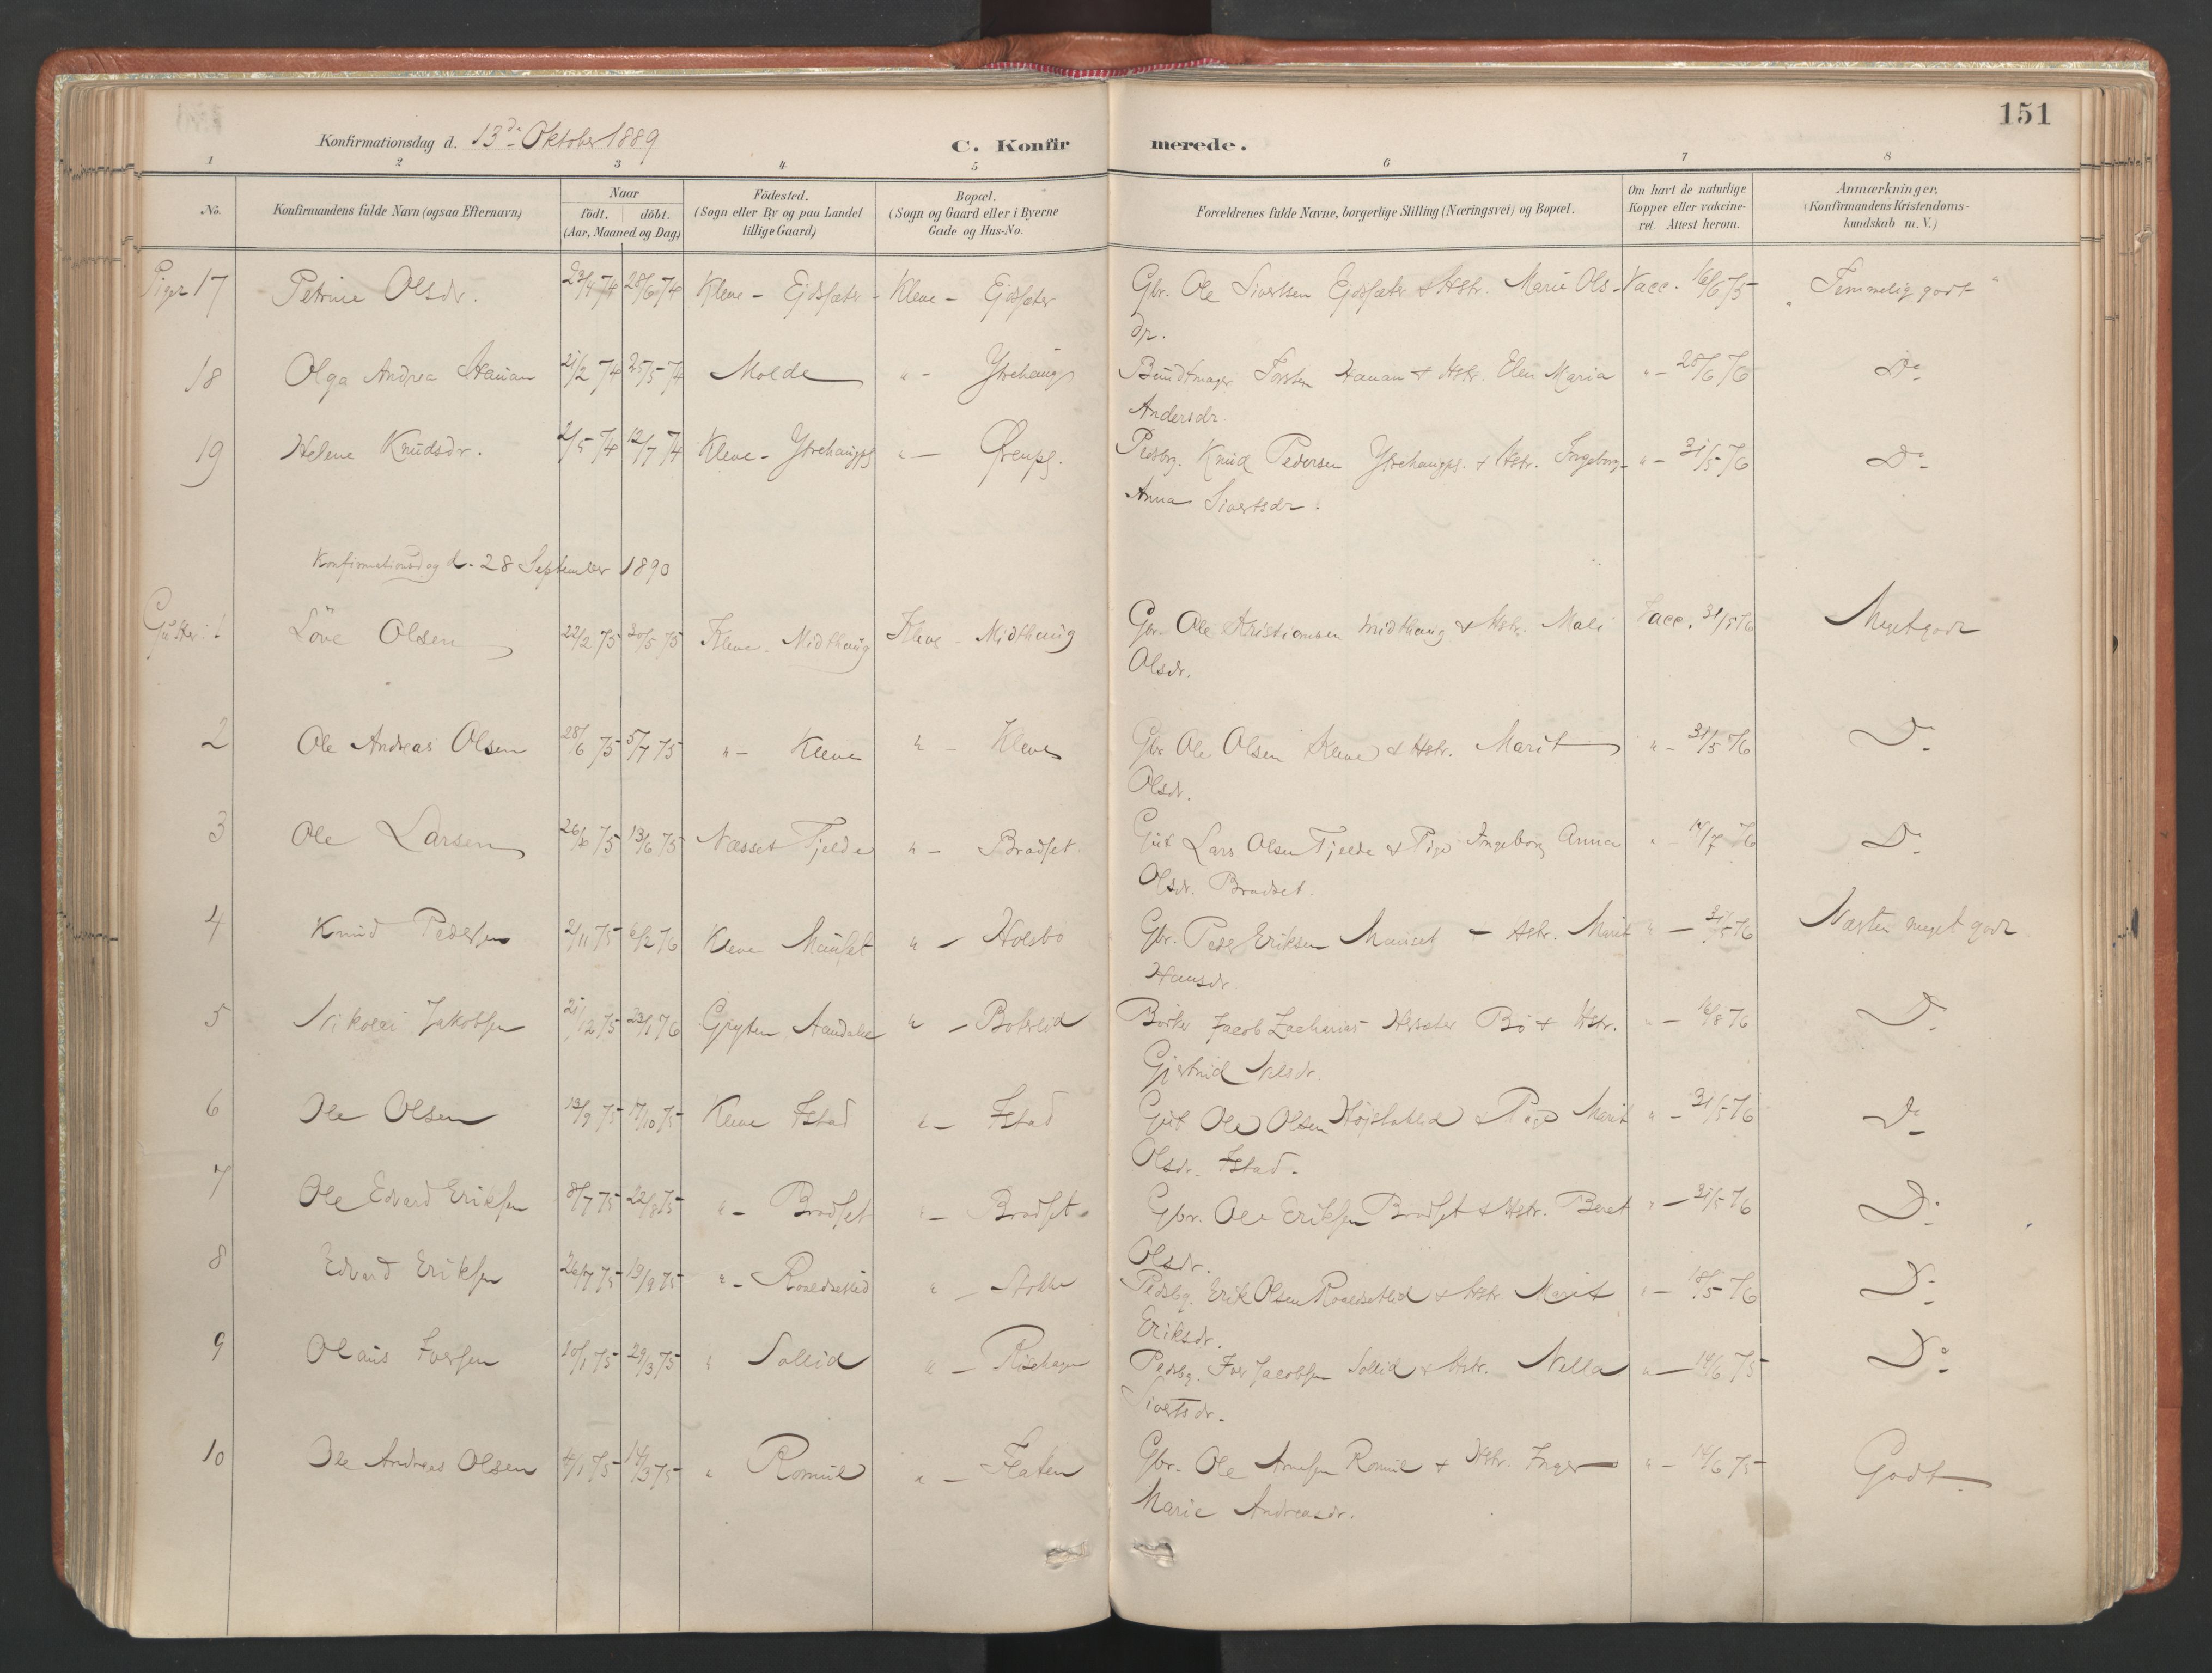 151
Konfirmationsdag d. 13de Oktober 1889
C. Konfirmerede.
1 2 3 4 5 6 7 8
No. Konfirmandens fulde Navn (ogsaa Efternavn) Naar födt. döbt. (Aar, Maaned og Dag) Födested. (Sogn eller By og paa Landet tillige Gaard) Bopæl. (Sogn og Gaard eller i Byerne Gade og Hus-No. Forældrenes fulde Navne, borgerlige Stilling (Næringsvei) og Bopæl. Om havt de naturlige Kopper eller vakcineret. Attest herom. Anmærkninger, (Konfirmandens Kristendomskundskab m. V.)
Piger 17 Petrine Olsdr. 23/4 74 28/6 74 Kleve - Ejdsæter Kleve - Ejdsæter Gbr. Ole Sivertsen Ejdsæter & Hstr. Marie Ols- Vacc. 16/6 75 "Temmelig godt"
dr.
18 Olga Andrea Hauan 21/2 74 25/5 74 Molde " - Ytrehaug Bundtmager Torsten Hauan & Hstr. Elen Maria " - 28/6 76 Do
Andersdr.
19 Helene Knudsdr. 2/5 74 12/7 74 Kleve - Ytrehaugpl " - Pldsbg. Knud Pedersen Ytrehaugpl. & Hstr. Ingeborg- " - 31/5 76 Do
Anna Sivertsdr.
Konfirmationsdag d. 28 September 1890
Gutter: 1 Löve Olsen 22/2 75 30/5 75 Kleve - Midthaug Kleve - Midthaug Gbr. Ole Kristiansen Midthaug & Hstr. Mali Vacc. 31/5 76 Meget godt
Olsdr.
2 Ole Andreas Olsen 28/6 75 5/7 75 " - Kleve " - Kleve Gbr Ole Olsen Kleve & Hstr. Marit " - 31/5 76 Do
Olsdr.
3 Ole Larsen 13/6 75 Næsset Tjelde " - Bradset Gut Lars Olsen Tjelde & Pige Ingeborg Anna " - 76 Do
Olsdr. Bradset.
4 Knud Pedersen 2/11 75 6/2 76 Kleve Mauset " - Holsbo Gbr. Peder Eriksen Mauset & Hstr. Marit " - 31/5 76 Næsten meget godt
Hansdr.
5 Nikolai Jakobsen 21/12 75 23/1 76 Grytten Aandalen " - Jacob Zacharias Bö & Hstr. " - 16/8 76 Do
Gjertrud Nilsdr.
6 Ole Olsen 13/9 75 17/10 75 Kleve Istad " - Istad Gut Ole Olsen & Pige Marit " - 31/5 76 Do
Olsdr. Istad.
7 Ole Edvard Eriksen 8/7 75 22/8 75 " - Bradset " - Bradset Gbr. Ole Eriksen Bradset & Hstr. Beret " - 31/5 76 Do
Olsdr.
8 Edvard Eriksen 26/7 75 19/9 75 " - Roaldsetlid " - Pldsbg. Erik Olsen Roaldsetlid & Hstr Marit " - 18/5 76 Do
Eriksdr.
9 Olaus Iversen 20/1 75 29/3 75 " Sollid " - Risehagen Pldsbg. Iver Jacobsen Sollid & Hstr. Nella " - 16/6 75 Do
Sivertsdr.
10 Ole Andreas Olsen 4/1 75 14/3 75 " Romuld " - Flaten Gbr. Ole Arnesen Romuld & Hstr. Inger " - 16/6 75 Godt
Marie Andreasdr.